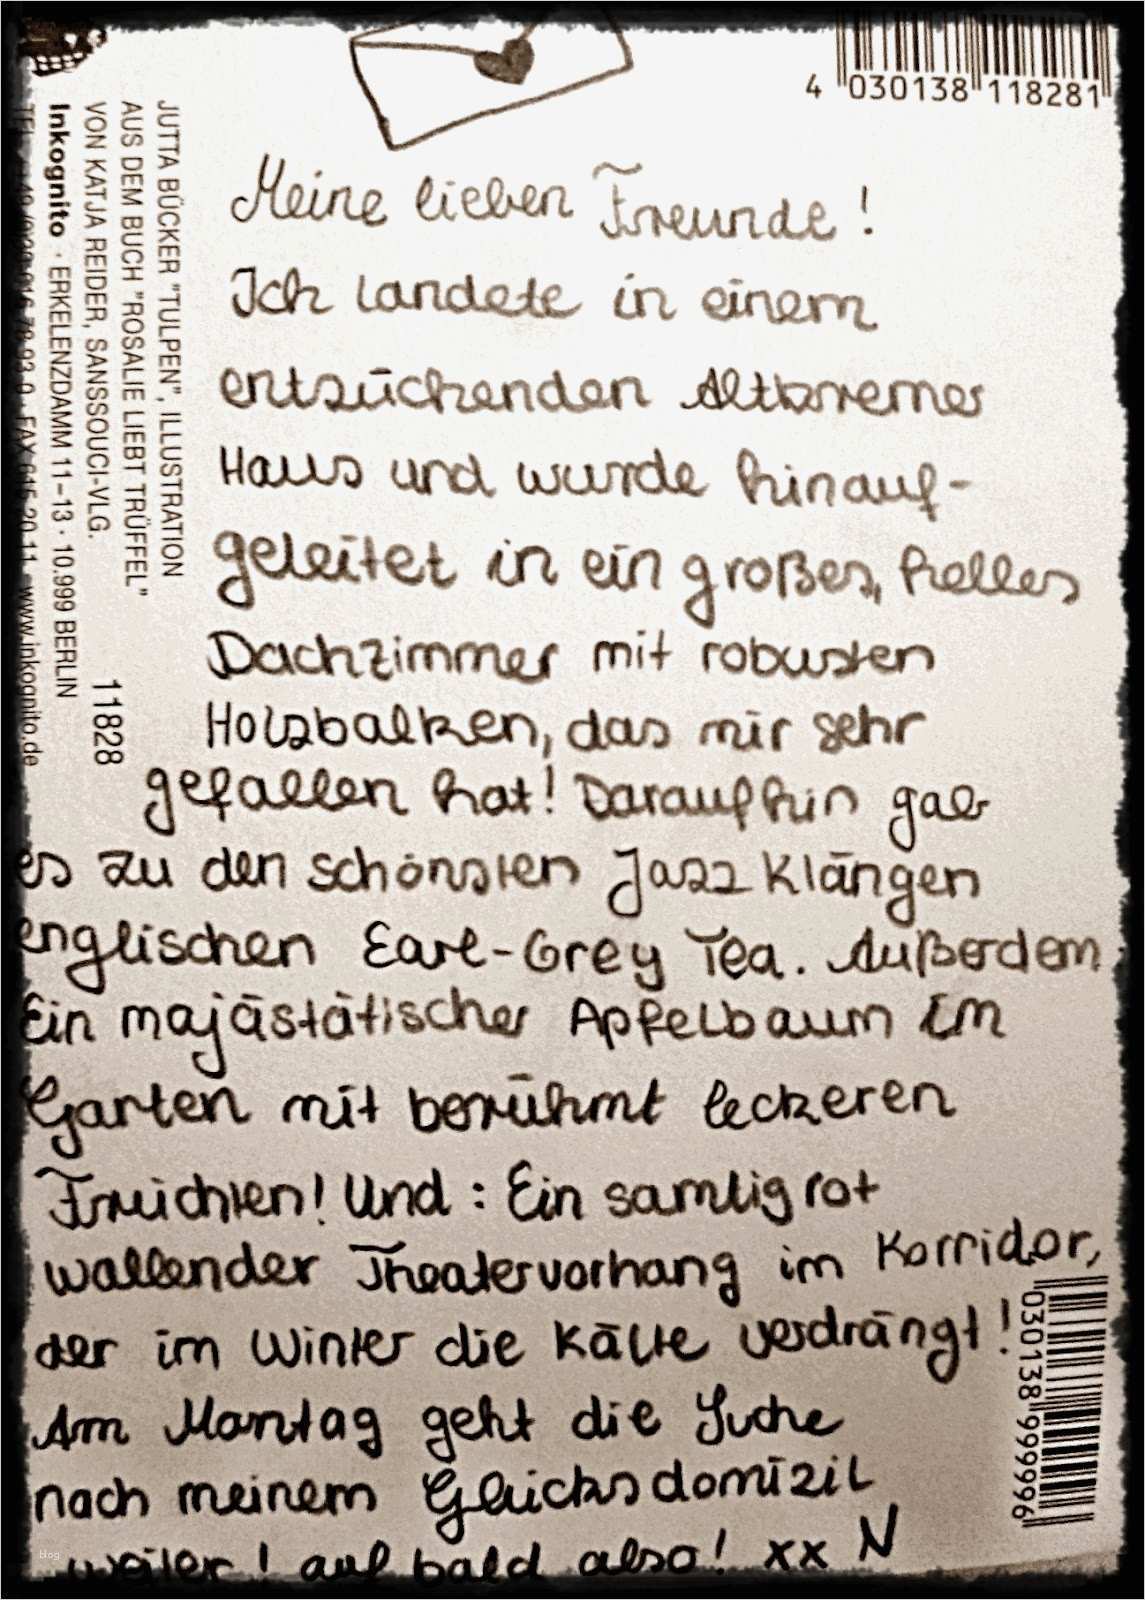 4 030138 118281
JUTTA BÜCKER "TULPEN", ILLUSTRATION
AUS DEM BUCH "ROSALIE LIEBT TRÜFFEL"
VON KATJA REIDER, SANSSOUCI-VLG.
Inkognito · ERKELENZDAMM 11–13 · 10.999 BERLIN
FAX 615 20 11 www.inkognito.de
11828
Meine lieben Freunde!
Ich landete in einem
entzückenden Altbremer
Haus und wurde hinauf-
geleitet in ein großes, helles
Dachzimmer mit robusten
Holzbalken, das mir sehr
gefallen hat! Daraufhin gab
es zu den schönsten Jazz Klängen
englischen Earl-Grey Tea. Außerdem
Ein majästätischer Apfelbaum im
Garten mit berühmt leckeren
Früchten! Und: Ein samtig rot
wallender Theatervorhang im Korridor,
der im Winter die Kälte verdrängt!
Am Montag geht die Suche
nach meinem Glücksdomizil
weiter! auf bald also! xx N
030138 999996
blog